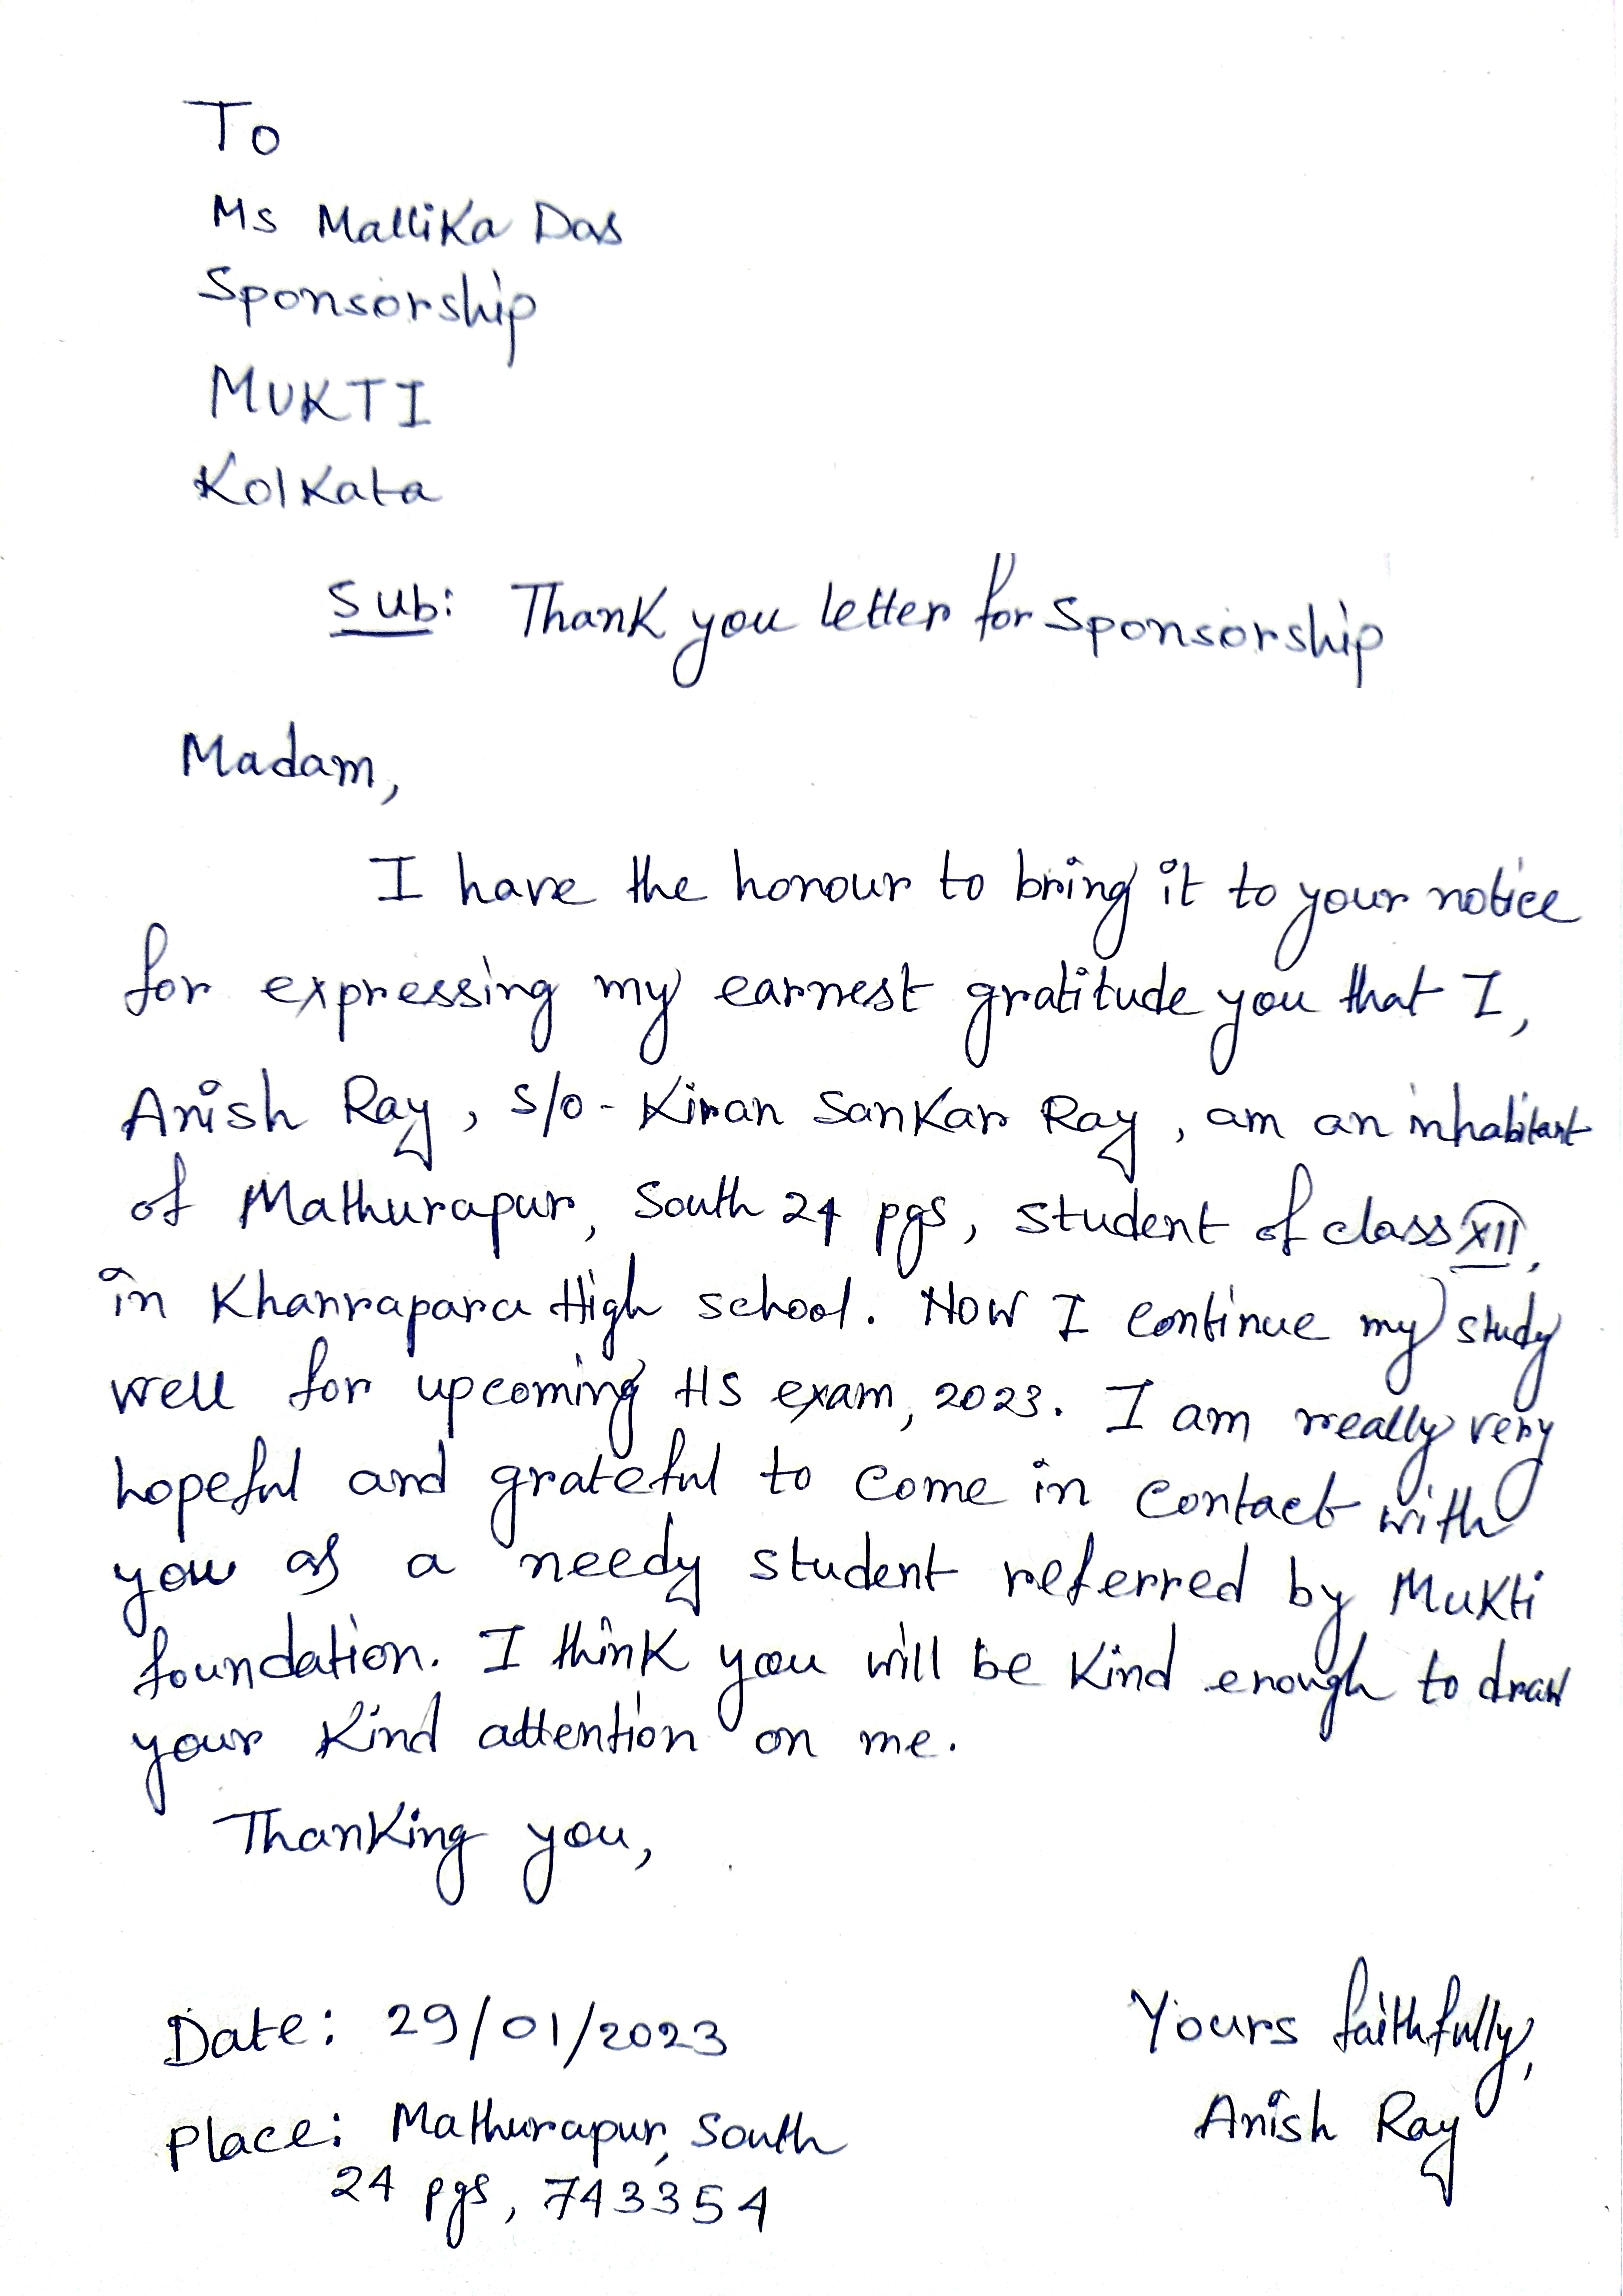 To
Ms Mallika Das
Sponsorship
MUKTI
Kolkata
Sub: Thank you letter for Sponsorship
Madam,
I have the honour to bring it to your notice
for expressing my earnest gratitude you that I,
Anish Ray, s/o - Kiran Sankar Ray, am an inhabitant
of Mathurapur, South 24 pgs, student of class XII,
in Khanrapara High school. Now I continue my study
well for upcoming HS exam, 2023. I am really very
hopeful and grateful to come in contact with
you as a needy student referred by Mukti
foundation. I think you will be kind enough to draw
your kind attention on me.
Thanking you,
Yours faithfully,
Anish Ray
Date: 29/01/2023
Place: Mathurapur, South
24 pgs, 743354